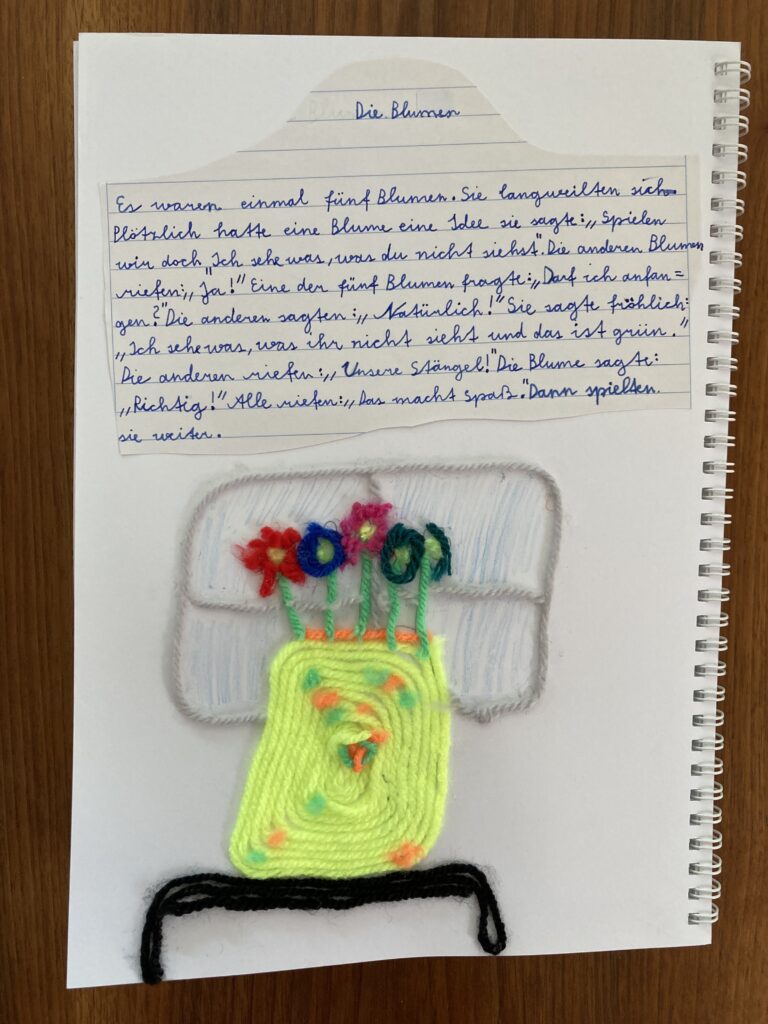 Die Blumen
Es waren einmal fünf Blumen. Sie langweilten sich
Plötzlich hatte eine Blume eine Idee sie sagte: „Spielen
wir doch "Ich sehe was, was du nicht siehst". Die anderen Blumen
riefen: „Ja!" Eine der fünf Blumen fragte: „Darf ich anfan=
gen?" Die anderen sagten: „Natürlich!" Sie sagte fröhlich:
„Ich sehe was, was ihr nicht sieht und das ist grün."
Die anderen riefen: „Unsere Stängel!" Die Blume sagte:
„Richtig!" Alle riefen: „Das macht Spaß." Dann spielten
sie weiter.